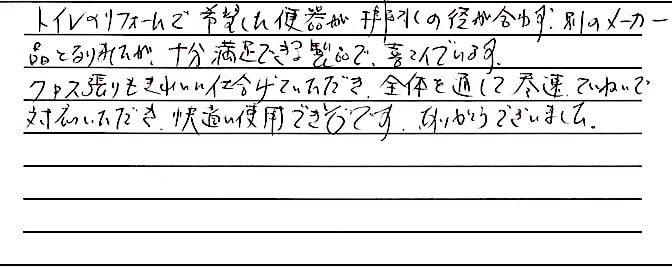 トイレのリフォームで希望した便器が排引の径が合わず、別のメーカー
品となりましたが、十分満足できる製品で、喜んでいます。
クロス張りもきれいに仕上げていただき、全体を通して尽速、ていねいで
対応いただき、快適に使用できそうです。ありがとうございました。